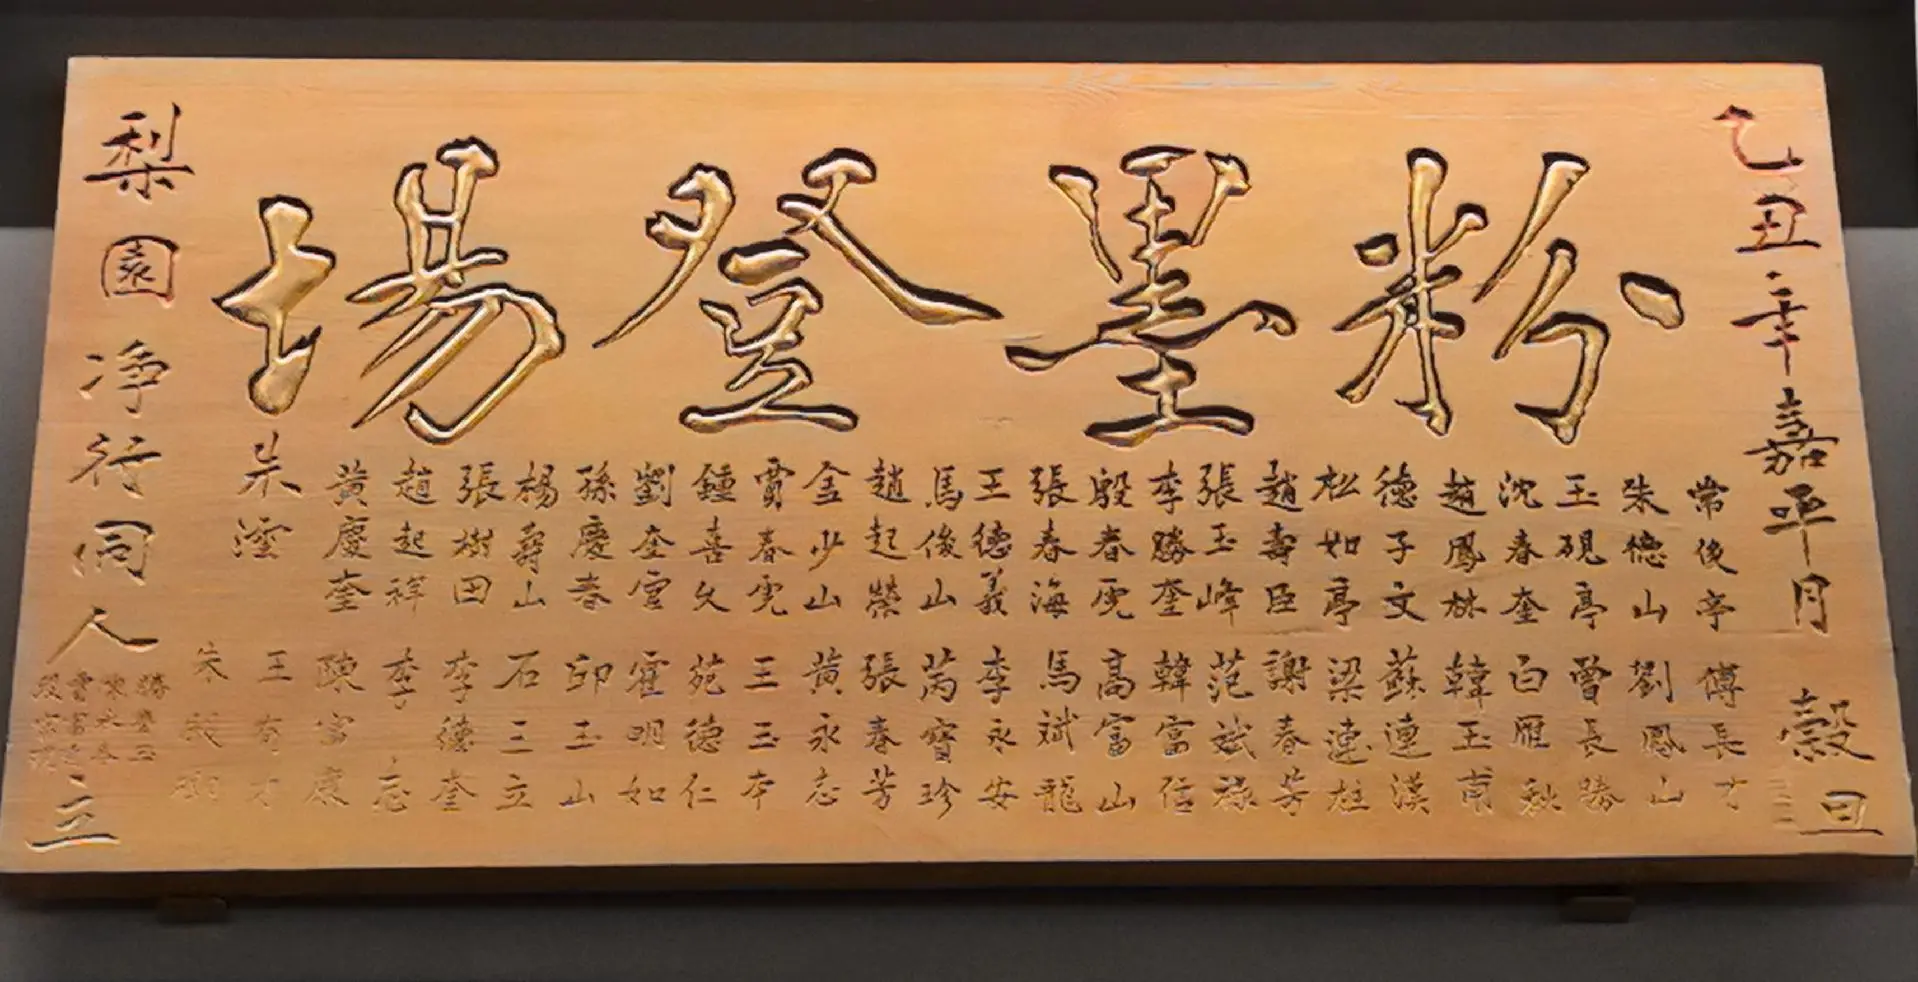 乙丑年嘉平月 穀旦
粉墨登場
常俊亭
朱德山
玉硯亭
沈春奎
趙鳳林
德子文
松如亭
趙壽臣
張玉峰
李勝奎
殷春虎
張春海
王德義
馬俊山
趙起榮
金少山
賈春虎
鍾喜久
劉奎官
孫慶春
楊壽山
張樹田
趙起祥
黃慶奎
傅長才
劉鳳山
曾長勝
白雁秋
韓玉甫
蘇連漢
梁連柱
謝春芳
范斌祿
韓富信
高富山
馬斌龍
李永安
芮寶珍
張春芳
黃永志
王玉本
苑德仁
霍明如
邱玉山
石三立
李德奎
李志
陳富康
王有才
梨園淨行同人立